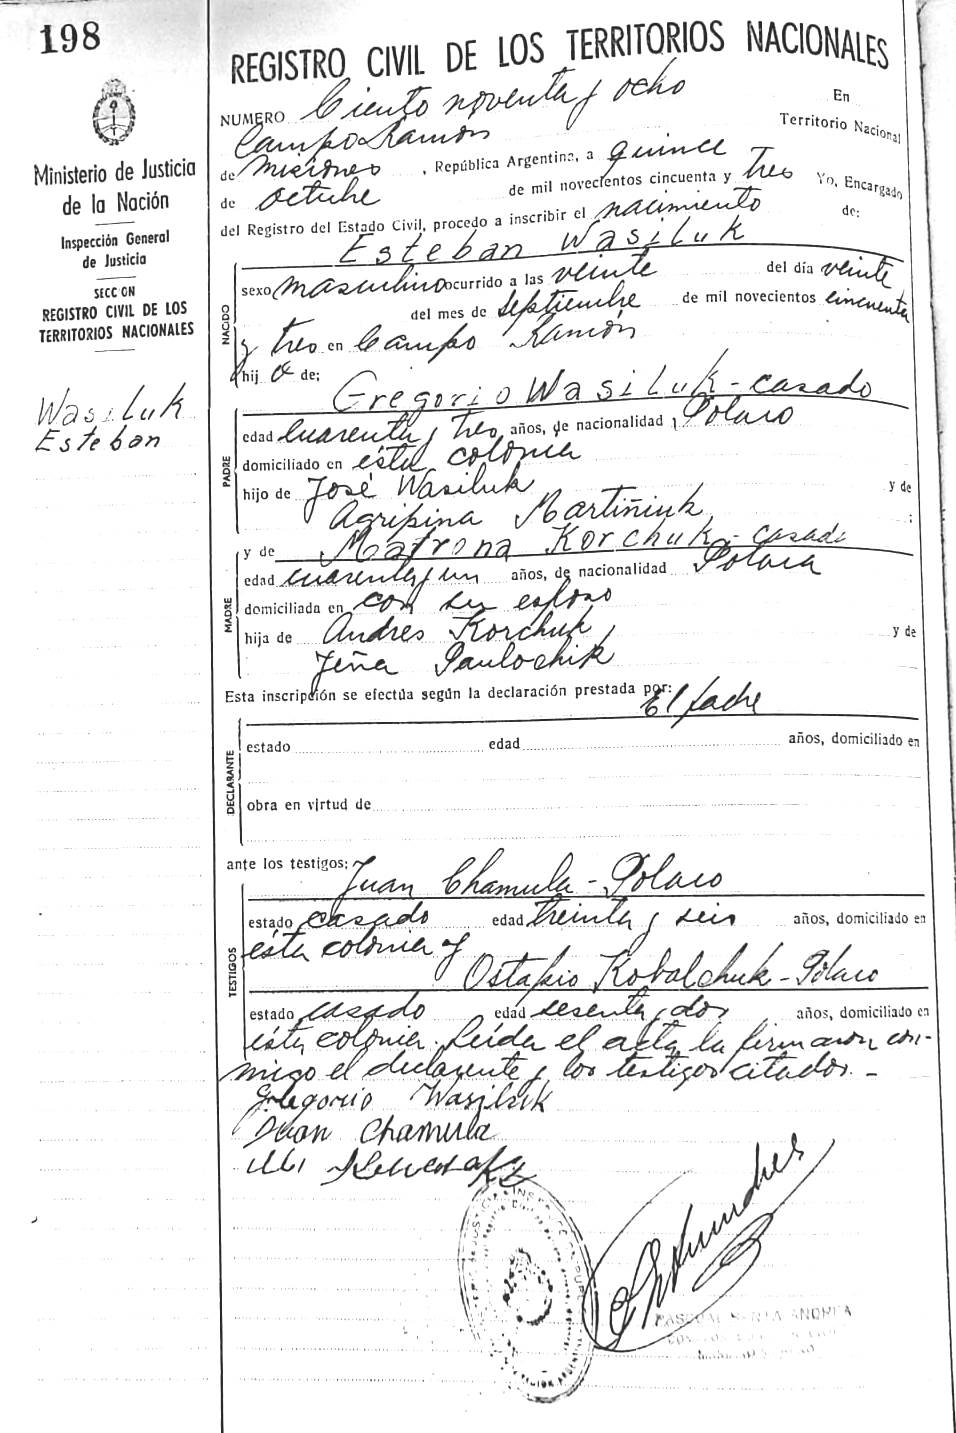 198
Ministerio de Justicia
de la Nación
Inspección General
de Justicia
SECCION
REGISTRO CIVIL DE LOS
TERRITORIOS NACIONALES
Wasiluk
Esteban
REGISTRO CIVIL DE LOS TERRITORIOS NACIONALES
NUMERO Ciento noventa y ocho En
Campo Ramón Territorio Nacional
de Misiones, República Argentina, a quince
de octubre de mil novecientos cincuenta y tres Yo, Encargado
del Registro del Estado Civil, procedo a inscribir el nacimiento de:
Esteban Wasiluk
NACIDO
sexo masculino ocurrido a las veinte del día veinte
del mes de septiembre de mil novecientos cincuenta
y tres en Campo Ramón
hij o de;
Gregorio Wasiluk - casado
PADRE
edad cuarenta y tres años, de nacionalidad Polaco
domiciliado en ésta colonia
hijo de José Wasiluk y de
Agripina Martiñiuk ;
y de Matrona Korchuk - casada
MADRE
edad cuarenta y un años, de nacionalidad Polaca
domiciliada en con su esposo
hija de Andres Korchuk y de
Jeña Paulochik
Esta inscripción se efectúa según la declaración prestada por: El padre
DECLARANTE
estado edad años, domiciliado en
obra en virtud de
ante los testigos; Juan Chamula - Polaco
TESTIGOS
estado casado edad treinta y seis años, domiciliado en
ésta colonia y
Ostapio Kobalchuk - Polaco
estado casado edad sesenta y dos años, domiciliado en
ésta colonia. Leída el acta la firmaron con-
migo el declarante y los testigos citados. -
Gregorio Wasiluk
Juan Chamula